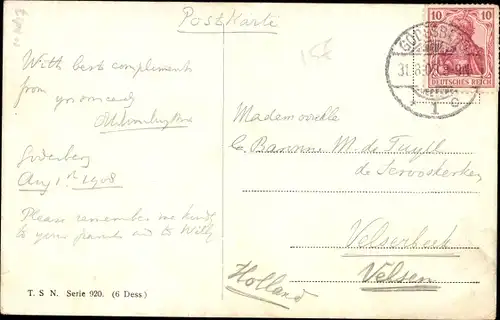 Postkarte
With best compliments
from yrs sincerely
Godesberg
Aug 1st 1908
Please remember me kindly
to your parents and to Willy
T. S. N. Serie 920. (6 Dess.)
10 10
DEUTSCHES REICH
GODESBERG
31.
1 c
Mademoiselle
la Baronne M. de Tuyll
de Serooskerken
Velserbeek
Velsen
Holland